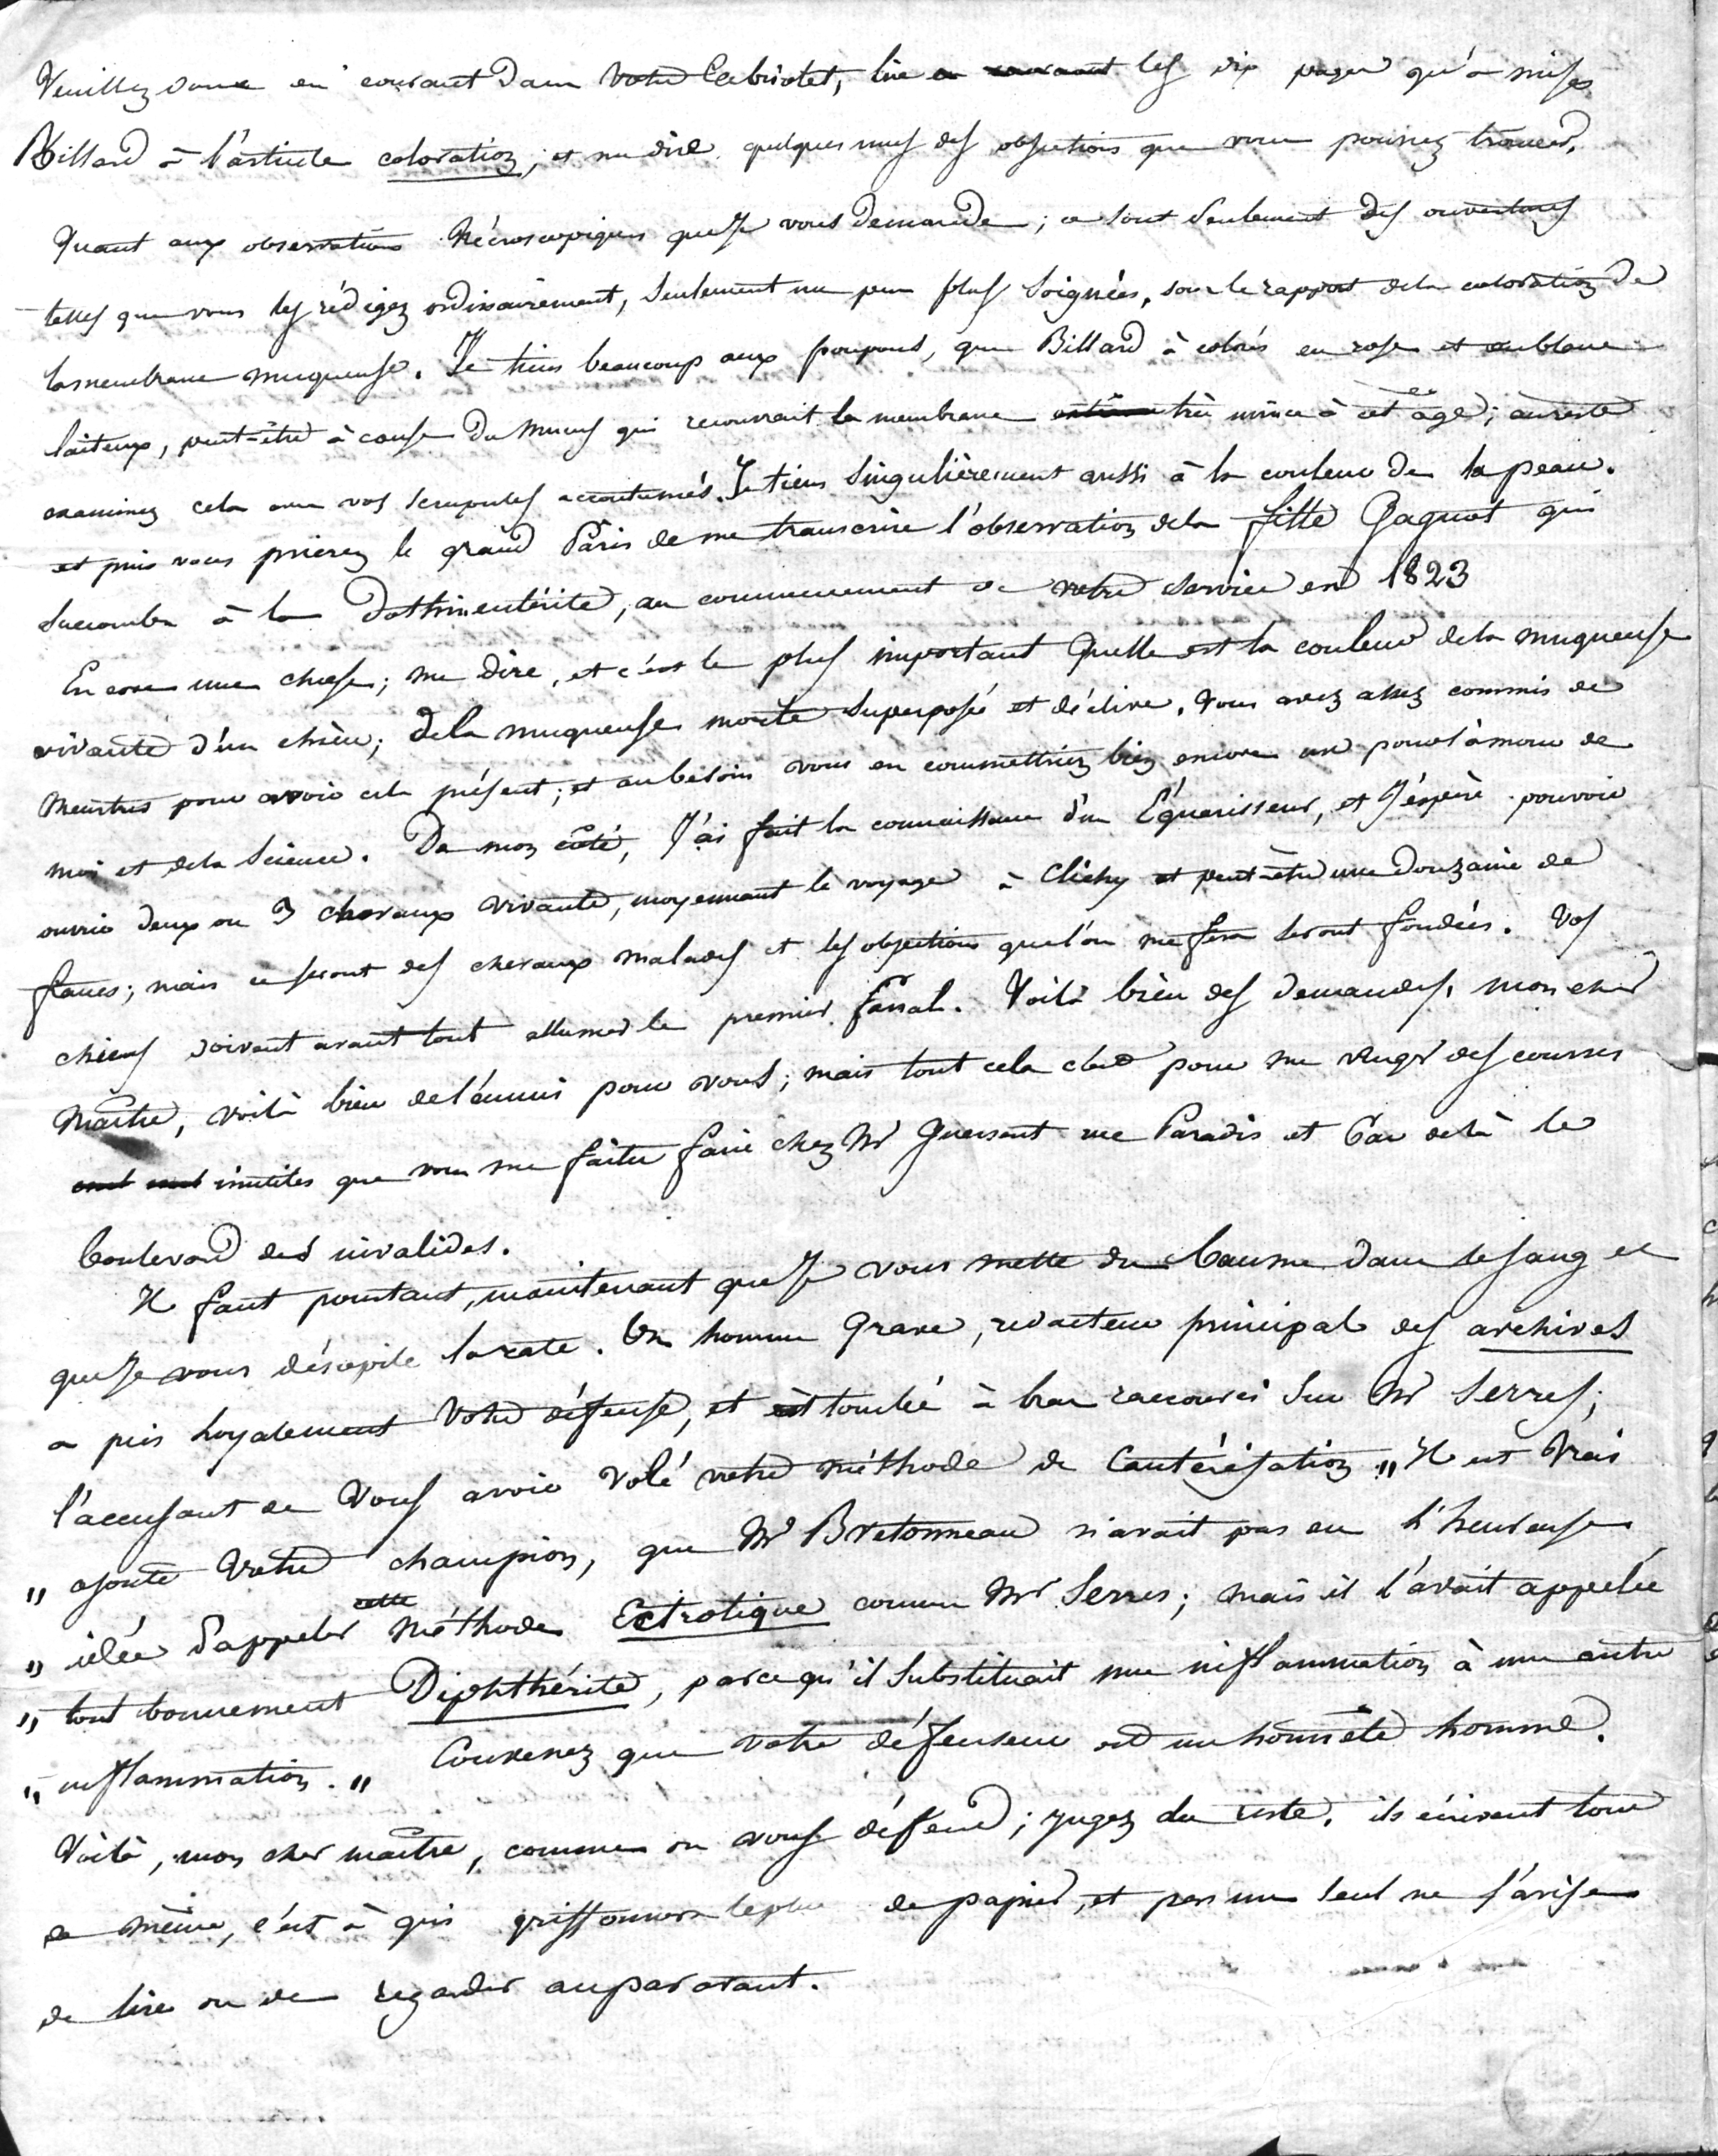 Veuillez donc en courant dans votre Cabriolet, lire en courant les dix pages qu'a mises
Billard à l'article coloration; et me dire quelques unes des objections que vous pourrez trouver.
Quant aux observations Nécroscopiques que Je vous demande; ce sont seulement des ouvertures
telles que vous les rédigez ordinairement, seulement un peu plus soignées, sous le rapport de la coloration de
la membrane muqueuse. Je tiens beaucoup aux poupons, que Billard à colorés en rose et en blanc
laiteux, peut-être à cause du mucus qui recouvrait la membrane très mince à cet âge; au reste
examinez cela avec vos scrupules accoutumés. Je tiens singulièrement aussi à la couleur de la peau.
et puis vous prierez le grand Pâris de me transcrire l'observation de la fille Gaguot qui
succomba à la Dothinentérite, au commencement de votre service en 1823
Encore une chose; me dire, et c'est le plus important Quelle est la couleur de la muqueuse
vivante d'un chien; de la muqueuse morte superposée et déclive. Vous avez assez commis de
meurtres pour avoir cela présent; et au besoin vous en commettriez bien encore un pour l'amour de
moi et de la science. De mon côté, J'ai fait la connaissance d'un Equarisseur, et J'éspère pouvoir
ouvrir deux ou 3 chevaux vivants, moyennant le voyage à Clichy et peut-être une Douzaine de
francs; mais ce seront des chevaux malades et les objections que l'on me fera seront fondées. Vos
chiens doivent avant tout allumer le premier fanal. Voilà bien des demandes, mon cher
Maître, voilà bien de l'ennui pour vous; mais tout cela c'est pour me venger des courses
inutiles que vous me faites faire chez Mr Guersent rue Paradis et Par delà le
boulevard des invalides.
Il faut pourtant, maintenant que Je vous mette du baume dans le sang et
que Je vous désopile la rate. Un homme Grave, rédacteur principal des archives
a pris loyalement votre défense, et est tombé à bras raccourci sur Mr Serres;
l'accusant de Vous avoir volé votre méthode de Cautérisation „ Il est Vrai
„ ajoute Votre champion, que Mr Bretonneau n'avait pas eu l'heureuse
„ idée d'appeler cette Méthode Ectrotique comme Mr Serres; mais il l'avait appelée
„ tout bonnement Diphthérite, parcequ'il substituait une inflammation à une autre
„ inflammation. „ Convenez que votre défenseur est un honnête homme.
Voilà, mon cher maître, comme on vous défend; jugez du reste. ils écrivent tous
de même, c'est à qui griffonnera le plus de papier, et pas un seul ne s'avise
de lire ou de regarder auparavant.